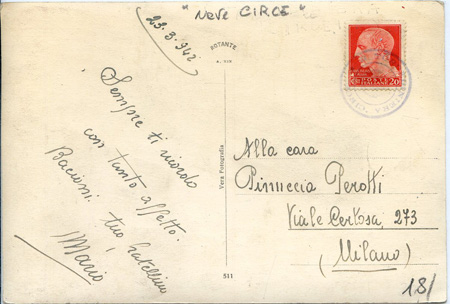 "Nave CIRCE"
23-3-942
Sempre ti ricordo
con tanto affetto.
Bacioni. tuo fratellino
Mario
Vera Fotografia
511
20
Alla cara
Pinuccia Perotti
Viale Certosa, 273
(Milano)
18/